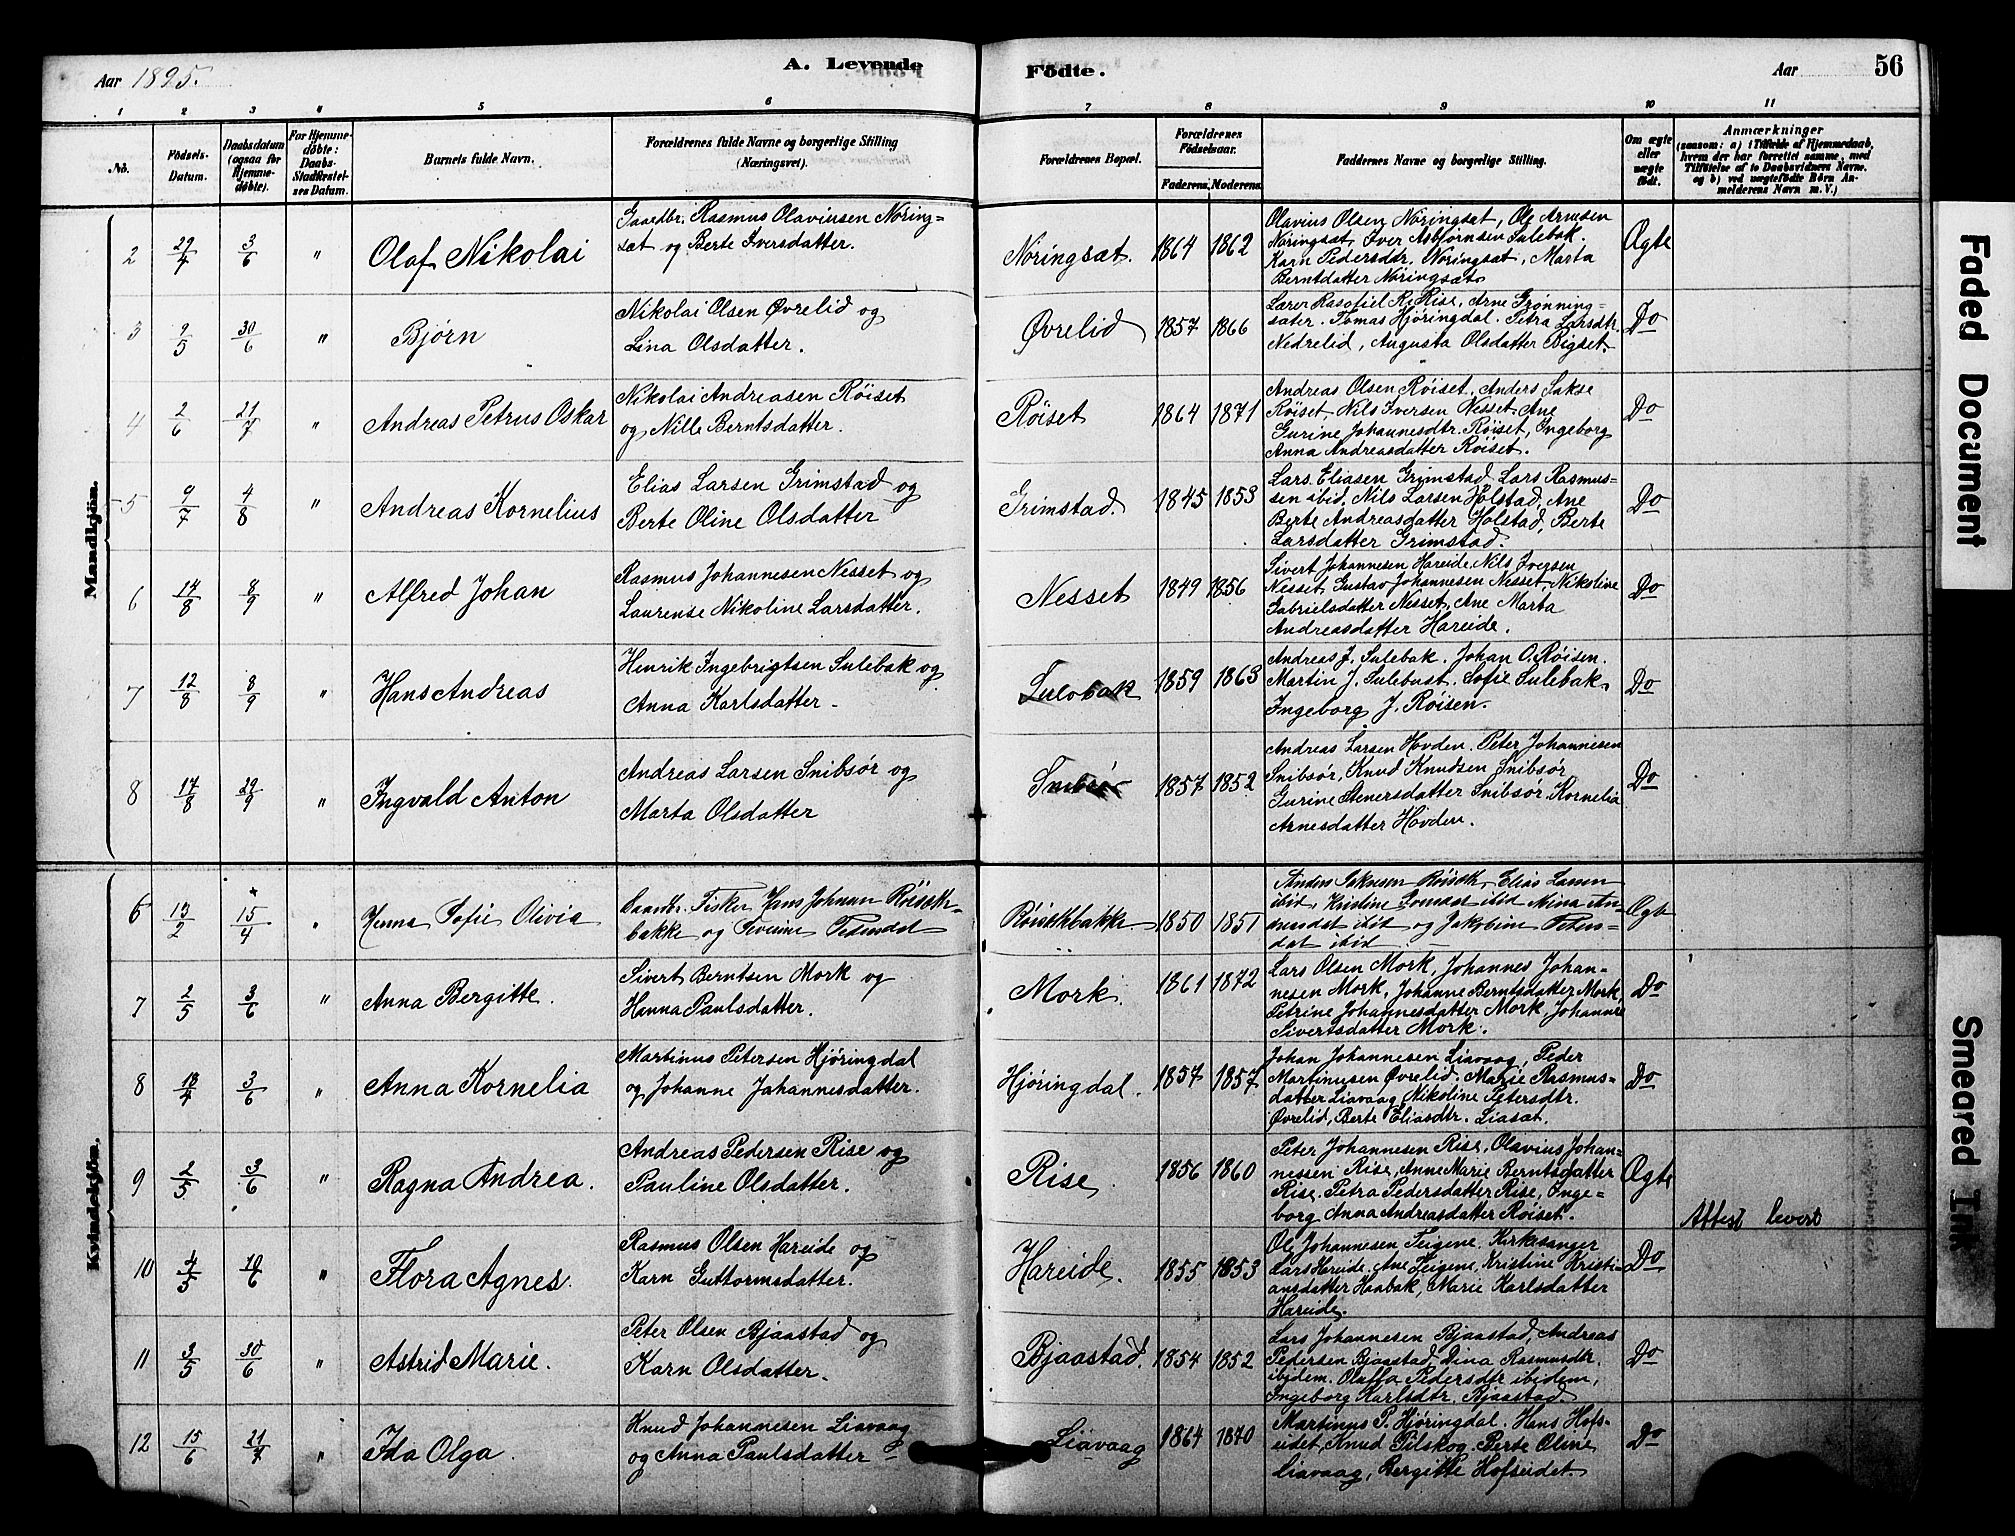 Aar 1895.
A. Levende
Fødte.
Aar
56
1 2 3 4 5 6 7 8 9 10 11
No.
Födsels-
Datum.
Daabsdatum
(ogsaa for
Hjemme-
döbte).
For Hjemme-
döbte:
Daabs-
Stadfæstel-
ses Datum.
Barnets fulde Navn.
Forældrenes fulde Navne og borgerlige Stilling
(Næringsvei).
Forældrenes Bopæl.
Forældrenes
Födselsaar.
Faderens. Moderens.
Faddernes Navne og borgerlige Stilling.
Om ægte
eller
uægte
født.
Anmærkninger
(saasom: a) i Tilfælde af Hjemmedaab,
hvem der har forrettet samme, med
Tilföielse af to Daabsvidners Navne,
og b) ved uægtefødte Börn An-
melderens Navn m. V.)
Mandkjön.
2 29/4 3/6 " Olaf Nikolai
Gaardbr. Rasmus Olavinsen Nøring=
sæt og Berte Iversdatter.
Nøringsæt. 1864 1862
Olavius Olsen Nøringsæt, Ole Arnesen
Nøringsæt, Iver Asbjørnsen Sulebak.
Karn Pedersdtr. Nøringsæt, Marta
Berntdatter Nøringsæt.
Ægte
3 9/5 30/6 " Bjørn
Nikolai Olsen Øvrelid og
Lina Olsdatter.
Øvrelid 1857 1866
Lærer Rise, Arne Grønning=
sæter. Tomas Hjøringdal. Petra Larsdtr.
Nedrelid, Augusta Olsdatter Bigset.
Do
4 2/6 21/7 " Andreas Petrus Oskar
Nikolai Andreasen Røiset
og Nille Berntsdatter.
Røiset 1864 1871
Andreas Olsen Røiset, Anders Jakse
Røiset, Nils Iversen Nesset, Ane
Gurine Johannesdtr. Røiset, Ingeborg
Anna Andreasdatter Røiset.
Do
5 9/7 4/8 " Andreas Kornelius
Elias Larsen Grimstad og
Berte Oline Olsdatter
Grimstad. 1845 1853
Lars Eliasen Grimstad, Lars Rasmus=
sen ibid, Nils Larsen Holstad, Ane
Berte Andreasdatter Holstad, Berte
Larsdatter Grimstad.
Do
6 14/8 8/9 " Alfred Johan
Rasmus Johannesen Nesset og
Laurense Nikoline Larsdatter.
Nesset 1849 1856
Sivert Johannesen Hareide, Nils Iversen
Nesset, Gustav Johannesen Nesset, Nikoline
Gabrielsdatter Nesset, Ane Marta
Andreasdatter Hareide.
Do
7 12/8 8/9 " Hans Andreas
Henrik Ingebrigtsen Sulebak og
Anna Karlsdatter.
Sulebak 1859 1863
Andreas J. Sulebak. Johan O. Røisen.
Martin J. Sulebust. Sofie Sulebak.
Ingeborg J. Røisen.
Do
8 17/8 29/9 " Ingvald Anton
Andreas Larsen Snibsør og
Marta Olsdatter
Snibsør 1857 1852
Andreas Larsen Hovden. Peter Johannesen
Snibsør, Knud Knudsen Snibsør
Gurine Stenersdatter Snibsør. Kornelia
Arnesdatter Hovden.
Do
Kvindekjön.
6 13/2 15/4 Sofie Olivia
Fisker Hans Johnsen
bakke og
1850 1851
Elias Larsen
ibid, Kristine ibid Nina
ibid og
ibid
7 2/5 3/6 " Anna Bergitte.
Sivert Berntsen Mork og
Hanna Paulsdatter.
Mork. 1861 1872
Lars Olsen Mork, Johannes Johan=
nesen Mork, Johanne Berntsdatter Mork,
Petrine Johannesdatter Mork, Johanne
Sivertsdatter Mork.
Do
8 18/4 3/6 " Anna Kornelia
Martinus Petersen Hjøringdal
og Johanne Johannesdatter.
Hjøringdal. 1857 1857
Johan Johannesen Liavaag, Peder
Martinusen Øvrelid. Marie Rasmus=
datter Liavaag, Nikoline Petersdtr.
Øvrelid, Berte Eliasdtr. Liasæt.
Do
9 2/5 3/6 " Ragna Andrea.
Andreas Pedersen Rise og
Pauline Olsdatter.
Rise 1856 1860
Peter Johannesen Rise, Olavius Johan=
nessen Rise, Anne Marie Berntsdatter
Rise. Petra Pedersdatter Rise, Inge=
borg Anna Andreasdatter Røiset.
Ægte
Attest levert
10 4/5 10/6 " Flora Agnes.
Rasmus Olsen Hareide og
Karn Guttormsdatter.
Hareide. 1855 1853
Ole Johannesen Teigene. Kirkesanger
Lars Hareide. Ane Teigene, Kristine Kristi=
ansdatter Haabak, Marie Karlsdatter
Hareide.
Do
11 3/5 30/6 " Astrid Marie.
Peter Olsen Bjaastad og
Karn Olsdatter.
Bjaastad. 1854 1852
Lars Johannesen Bjaastad, Andreas
Pedersen Bjaastad, Dina Rasmusdtr.
ibidem. Olaffa Pedersdtr ibidem,
Ingeborg Karlsdtr. Bjaastad.
Do
12 15/6 21/7 " Ida Olga.
Knud Johannesen Liavaag
og Anna Paulsdatter
Liavaag 1864 1870
Martinus P. Hjøringdal. Hans Hofs=
eidet, Knud Pilskog. Berte Oline
Liavaag, Bergitte Hofseidet.
Do
Faded Document
Smeared Ink